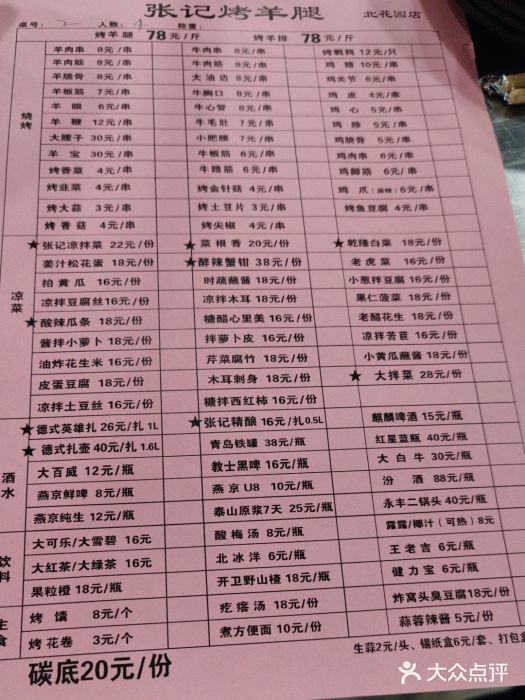 张记烤羊腿 北花园店
桌号： 2 人数： 4 称重：
烤羊腿 78元/斤 烤羊排 78元/斤
烧烤
羊肉串 8元/串 牛肉串 8元/串 烤鹌鹑 12元/只
羊肉筋 8元/串 牛肉筋 8元/串 鸡翅 10元/串
羊脆骨 8元/串 大油边 8元/串 鸡关节 6元/串
羊板筋 7元/串 牛胸口 8元/串 鸡皮 4元/串
羊眼 6元/串 牛心管 8元/串 鸡心 5元/串
羊鞭 12元/串 牛毛肚 7元/串 鸡胗 5元/串
大腰子 30元/串 小肥腰 7元/串 鸡脆骨 5元/串
羊宝 30元/串 牛板筋 6元/串 鸡肉串 6元/串
烤香菜 4元/串 牛蹄筋 6元/串 鸡脚筋 6元/串
烤韭菜 4元/串 烤金针菇 4元/串 鸡爪（麻辣）6元/串
烤大蒜 3元/串 烤土豆片 3元/串 烤鱼豆腐 4元/串
烤香菇 4元/串 烤尖椒 4元/串
凉菜
★张记凉拌菜 22元/份 ★菜根香 20元/份 ★乾隆白菜 18元/份
姜汁松花蛋 18元/份 ★醉辣蟹钳 38元/份 老虎菜 16元/份
拍黄瓜 16元/份 时蔬蘸酱 18元/份 小葱拌豆腐 16元/份
凉拌豆腐丝16元/份 凉拌木耳 18元/份 果仁菠菜 18元/份
★酸辣瓜条 18元/份 糖醋心里美 16元/份 老醋花生 18元/份
酱拌小萝卜 18元/份 拌萝卜皮 16元/份 凉拌苦苣 16元/份
油炸花生米 16元/份 芹菜腐竹 18元/份 小黄瓜蘸酱 18元/份
皮蛋豆腐 18元/份 木耳刺身 18元/份 ★大拌菜 28元/份
凉拌土豆丝 16元/份 糖拌西红柿 16元/份
酒水
★德式英雄扎 26元/扎 1L ★张记精酿 16元/扎 0.5L 麒麟啤酒 15元/瓶
★德式扎壶 40元/扎 1.6L 青岛铁罐 38元/瓶 红星蓝瓶 40元/瓶
大百威 12元/瓶 教士黑啤 16元/瓶 大白牛 30元/瓶
燕京鲜啤 8元/瓶 燕京 U8 10元/瓶 汾酒 88元/瓶
燕京纯生 12元/瓶 泰山原浆7天 25元/瓶 永丰二锅头 40元/瓶
饮料
大可乐/大雪碧 16元 酸梅汤 8元/瓶 露露/椰汁（可热）8元
大红茶/大绿茶 16元 北冰洋 6元/瓶 王老吉 6元/瓶
果粒橙 18元/瓶 开卫野山楂 18元/瓶 健力宝 6元/瓶
主食
烤馕 8元/个 疙瘩汤 18元/份 炸窝头臭豆腐18元/份
烤花卷 3元/个 煮方便面 10元/份 蒜蓉辣酱 5元/份
碳底20元/份 生蒜2元/头、锡纸盒6元/套、打包盒
大众点评